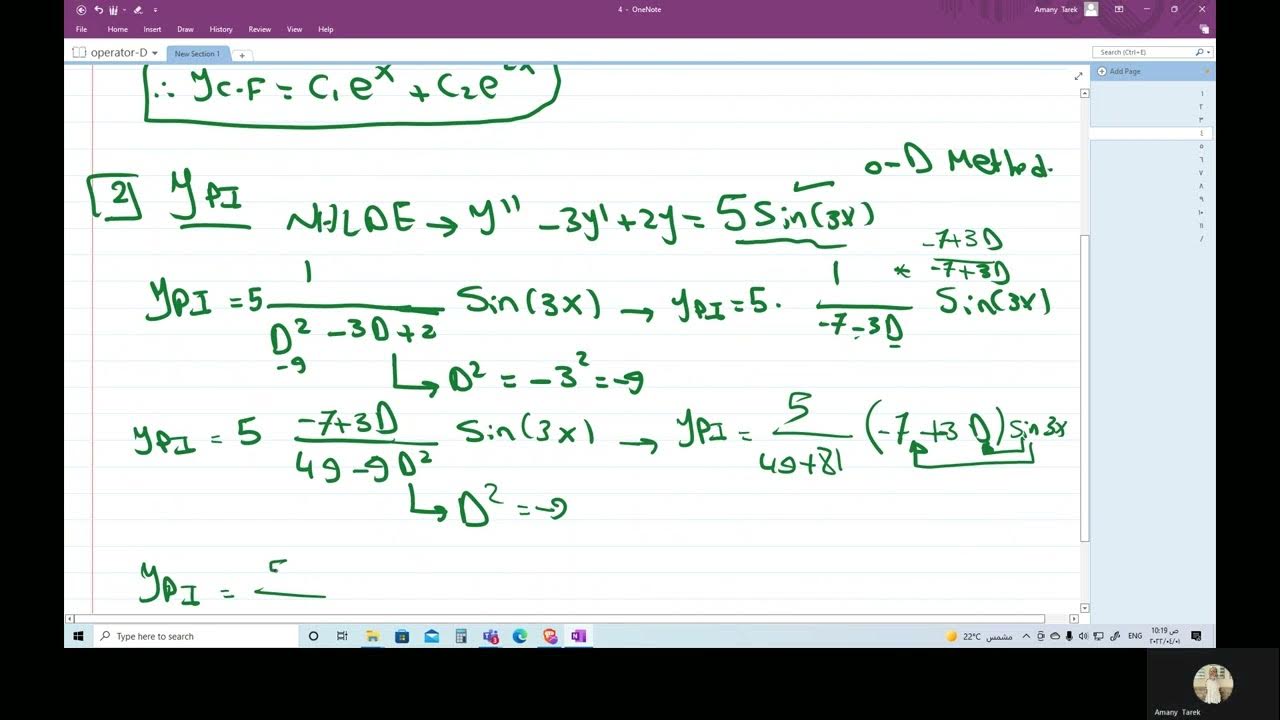 4 - OneNote
Amany Tarek
File Home Insert Draw History Review View Help
operator-D
New Section 1
Search (Ctrl+E)
Add Page
١
٢
٣
٤
٥
٦
٧
٨
٩
١٠
١١
∴ y C.F = C₁ e^x + C₂ e^2x
o-D Method.
[2] y PI
NHLDE → y'' - 3y' + 2y = 5 Sin(3x)
y PI = 5 1/(D² - 3D + 2) Sin(3x) → y PI = 5 · 1/(-7 - 3D) * (-7+3D)/(-7+3D) Sin(3x)
-9
↳ D² = -3² = -9
y PI = 5 (-7+3D)/(49 - 9D²) Sin(3x) → y PI = 5/(49+81) (-7 + 3D) Sin 3x
↳ D² = -9
y PI = 5
Type here to search
22°C مشمس
ENG
10:19 ص
٢٠٢٢/٠٤/٠١
Amany Tarek